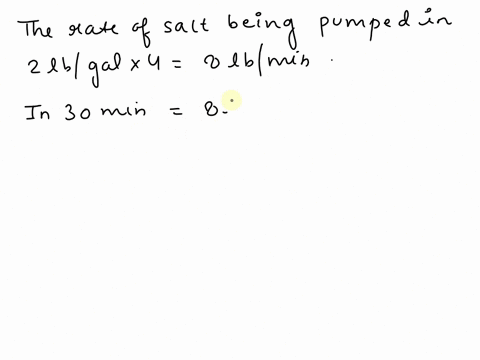 The rate of salt being pumped in
2 lb/gal x 4 = 8 lb/min .
In 30 min = 8.